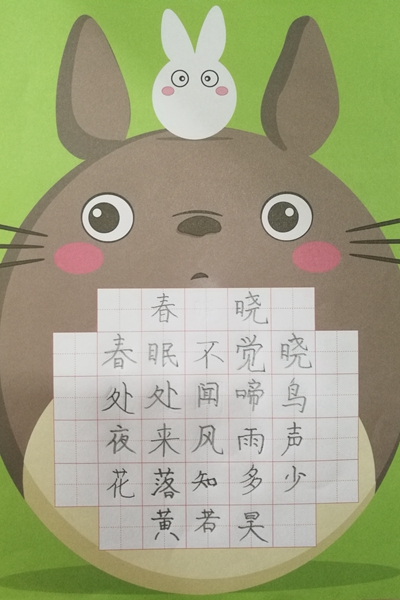 春晓
春眠不觉晓
处处闻啼鸟
夜来风雨声
花落知多少
黄若昊